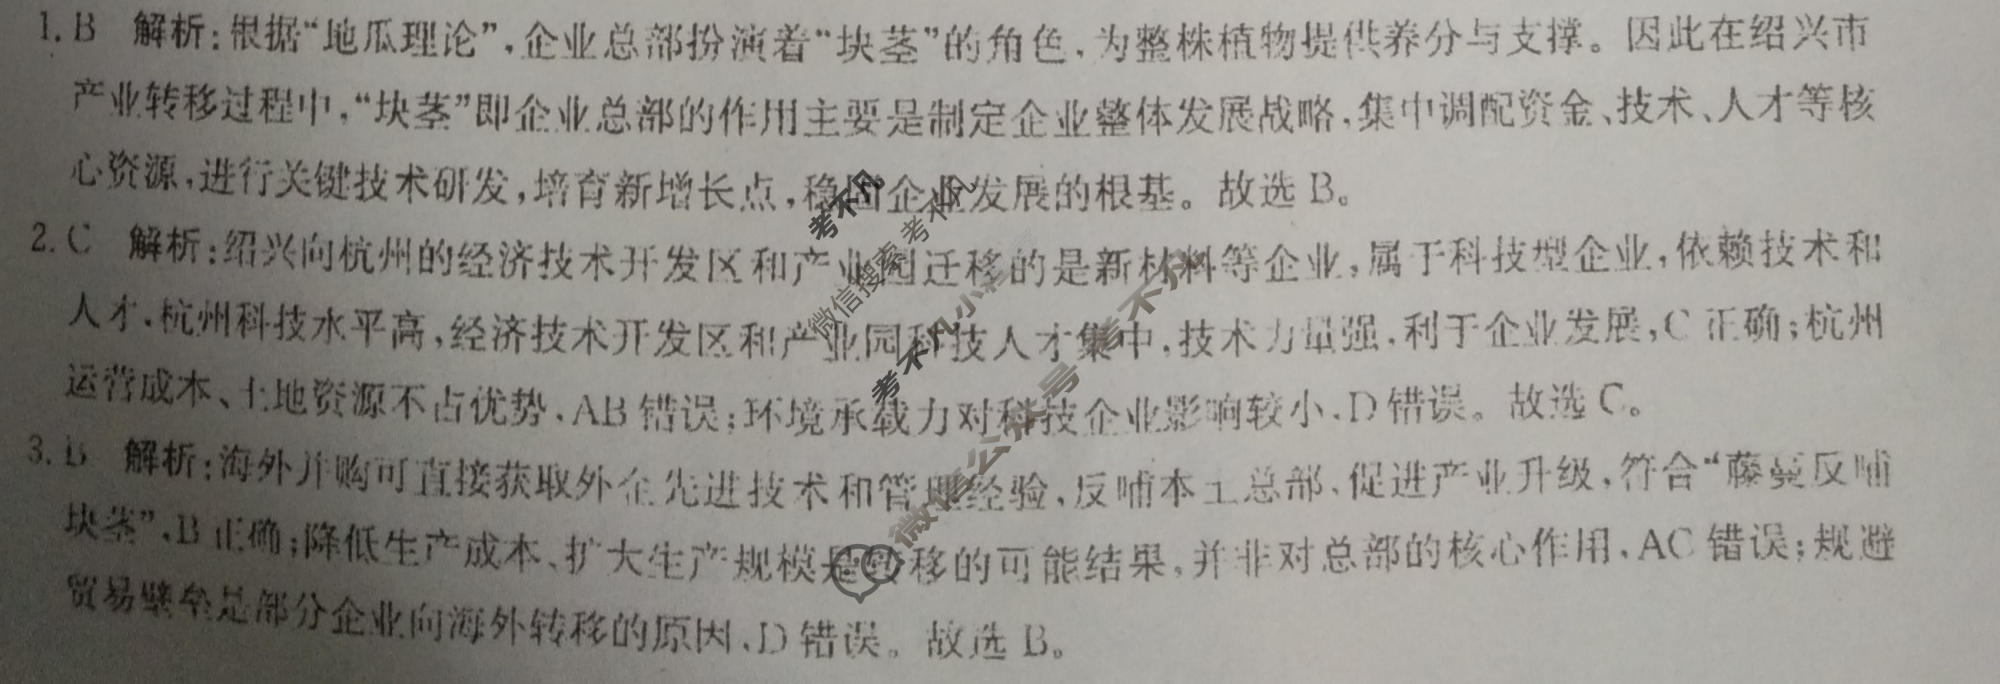 1. B 解析:根据“地瓜理论”,企业总部扮演着“块茎”的角色,为整株植物提供养分与支撑。因此在绍兴市
产业转移过程中,“块茎”即企业总部的作用主要是制定企业整体发展战略,集中调配资金、技术、人才等核
心资源,进行关键技术研发,培育新增长点,稳固企业发展的根基。故选 B。
2. C 解析:绍兴向杭州的经济技术开发区和产业园迁移的是新材料等企业,属于科技型企业,依赖技术和
人才,杭州科技水平高,经济技术开发区和产业园科技人才集中,技术力量强,利于企业发展,C 正确;杭州
运营成本、土地资源不占优势,AB 错误;环境承载力对科技企业影响较小,D 错误。故选 C。
3. B 解析:海外并购可直接获取外企先进技术和管理经验,反哺本土总部,促进产业升级,符合“藤蔓反哺
块茎”,B 正确;降低生产成本、扩大生产规模是转移的可能结果,并非对总部的核心作用,AC 错误;规避
贸易壁垒是部分企业向海外转移的原因,D 错误。故选 B。
考不凡
考不凡
微信搜索
考不凡小程序
微信公众号
考不凡